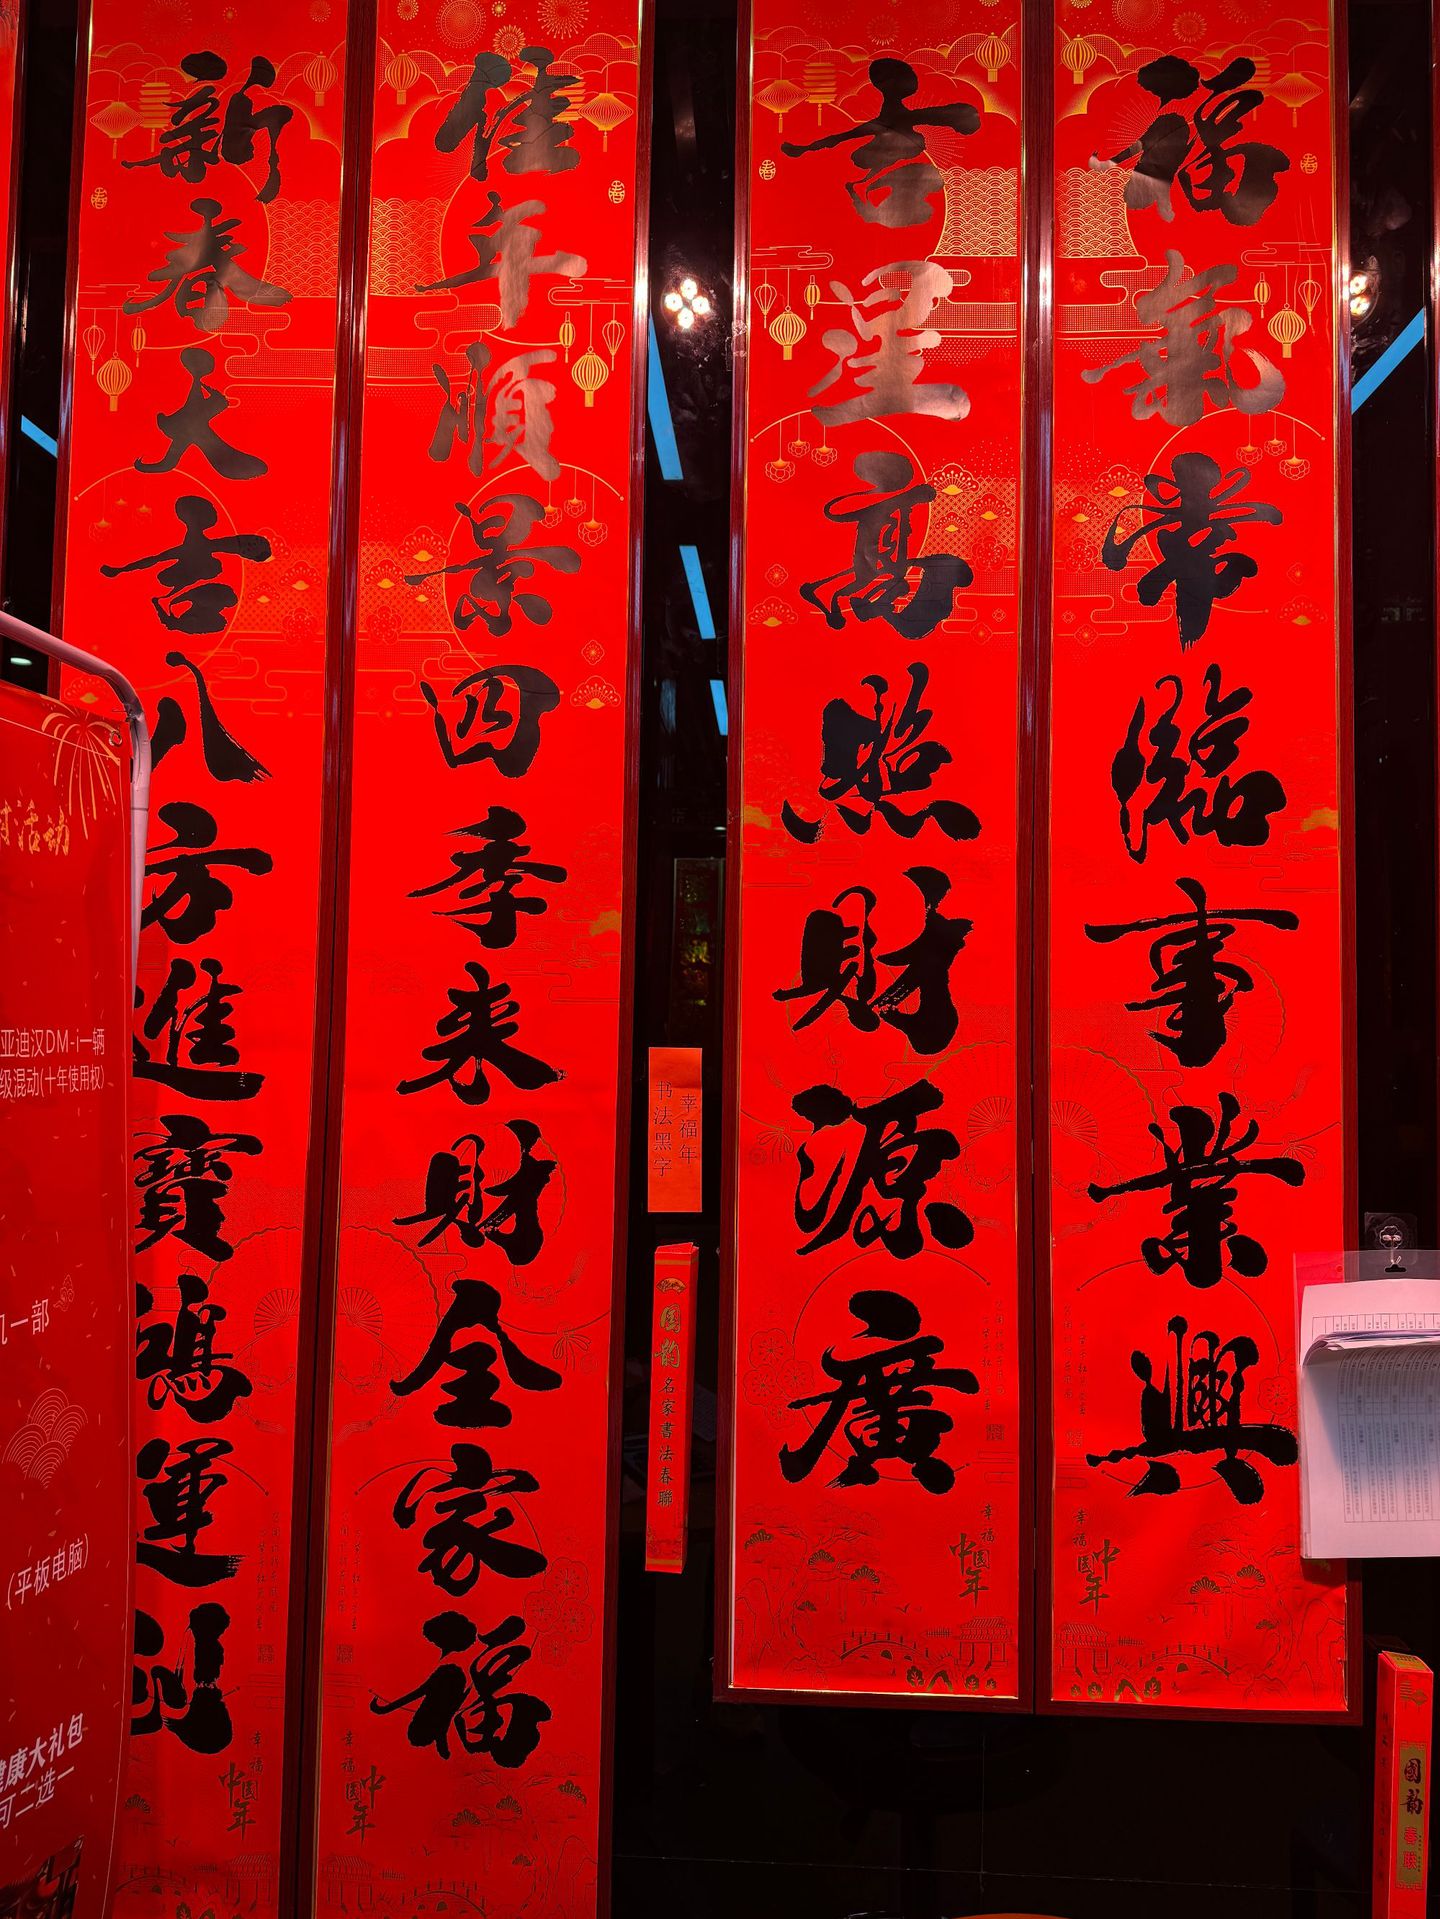 福氣常臨事業興
吉星高照財源廣
佳年順景四季来財全家福
新春大吉八方進寶鴻運到
幸福年
书法黑字
国韵
名家書法春聯
國韵
春联
幸福
中国年
幸福
中国年
幸福
中国年
幸福
中国年
活动
亚迪汉DM-i一辆
级混动(十年使用权)
一部
(平板电脑)
健康大礼包
可二选一